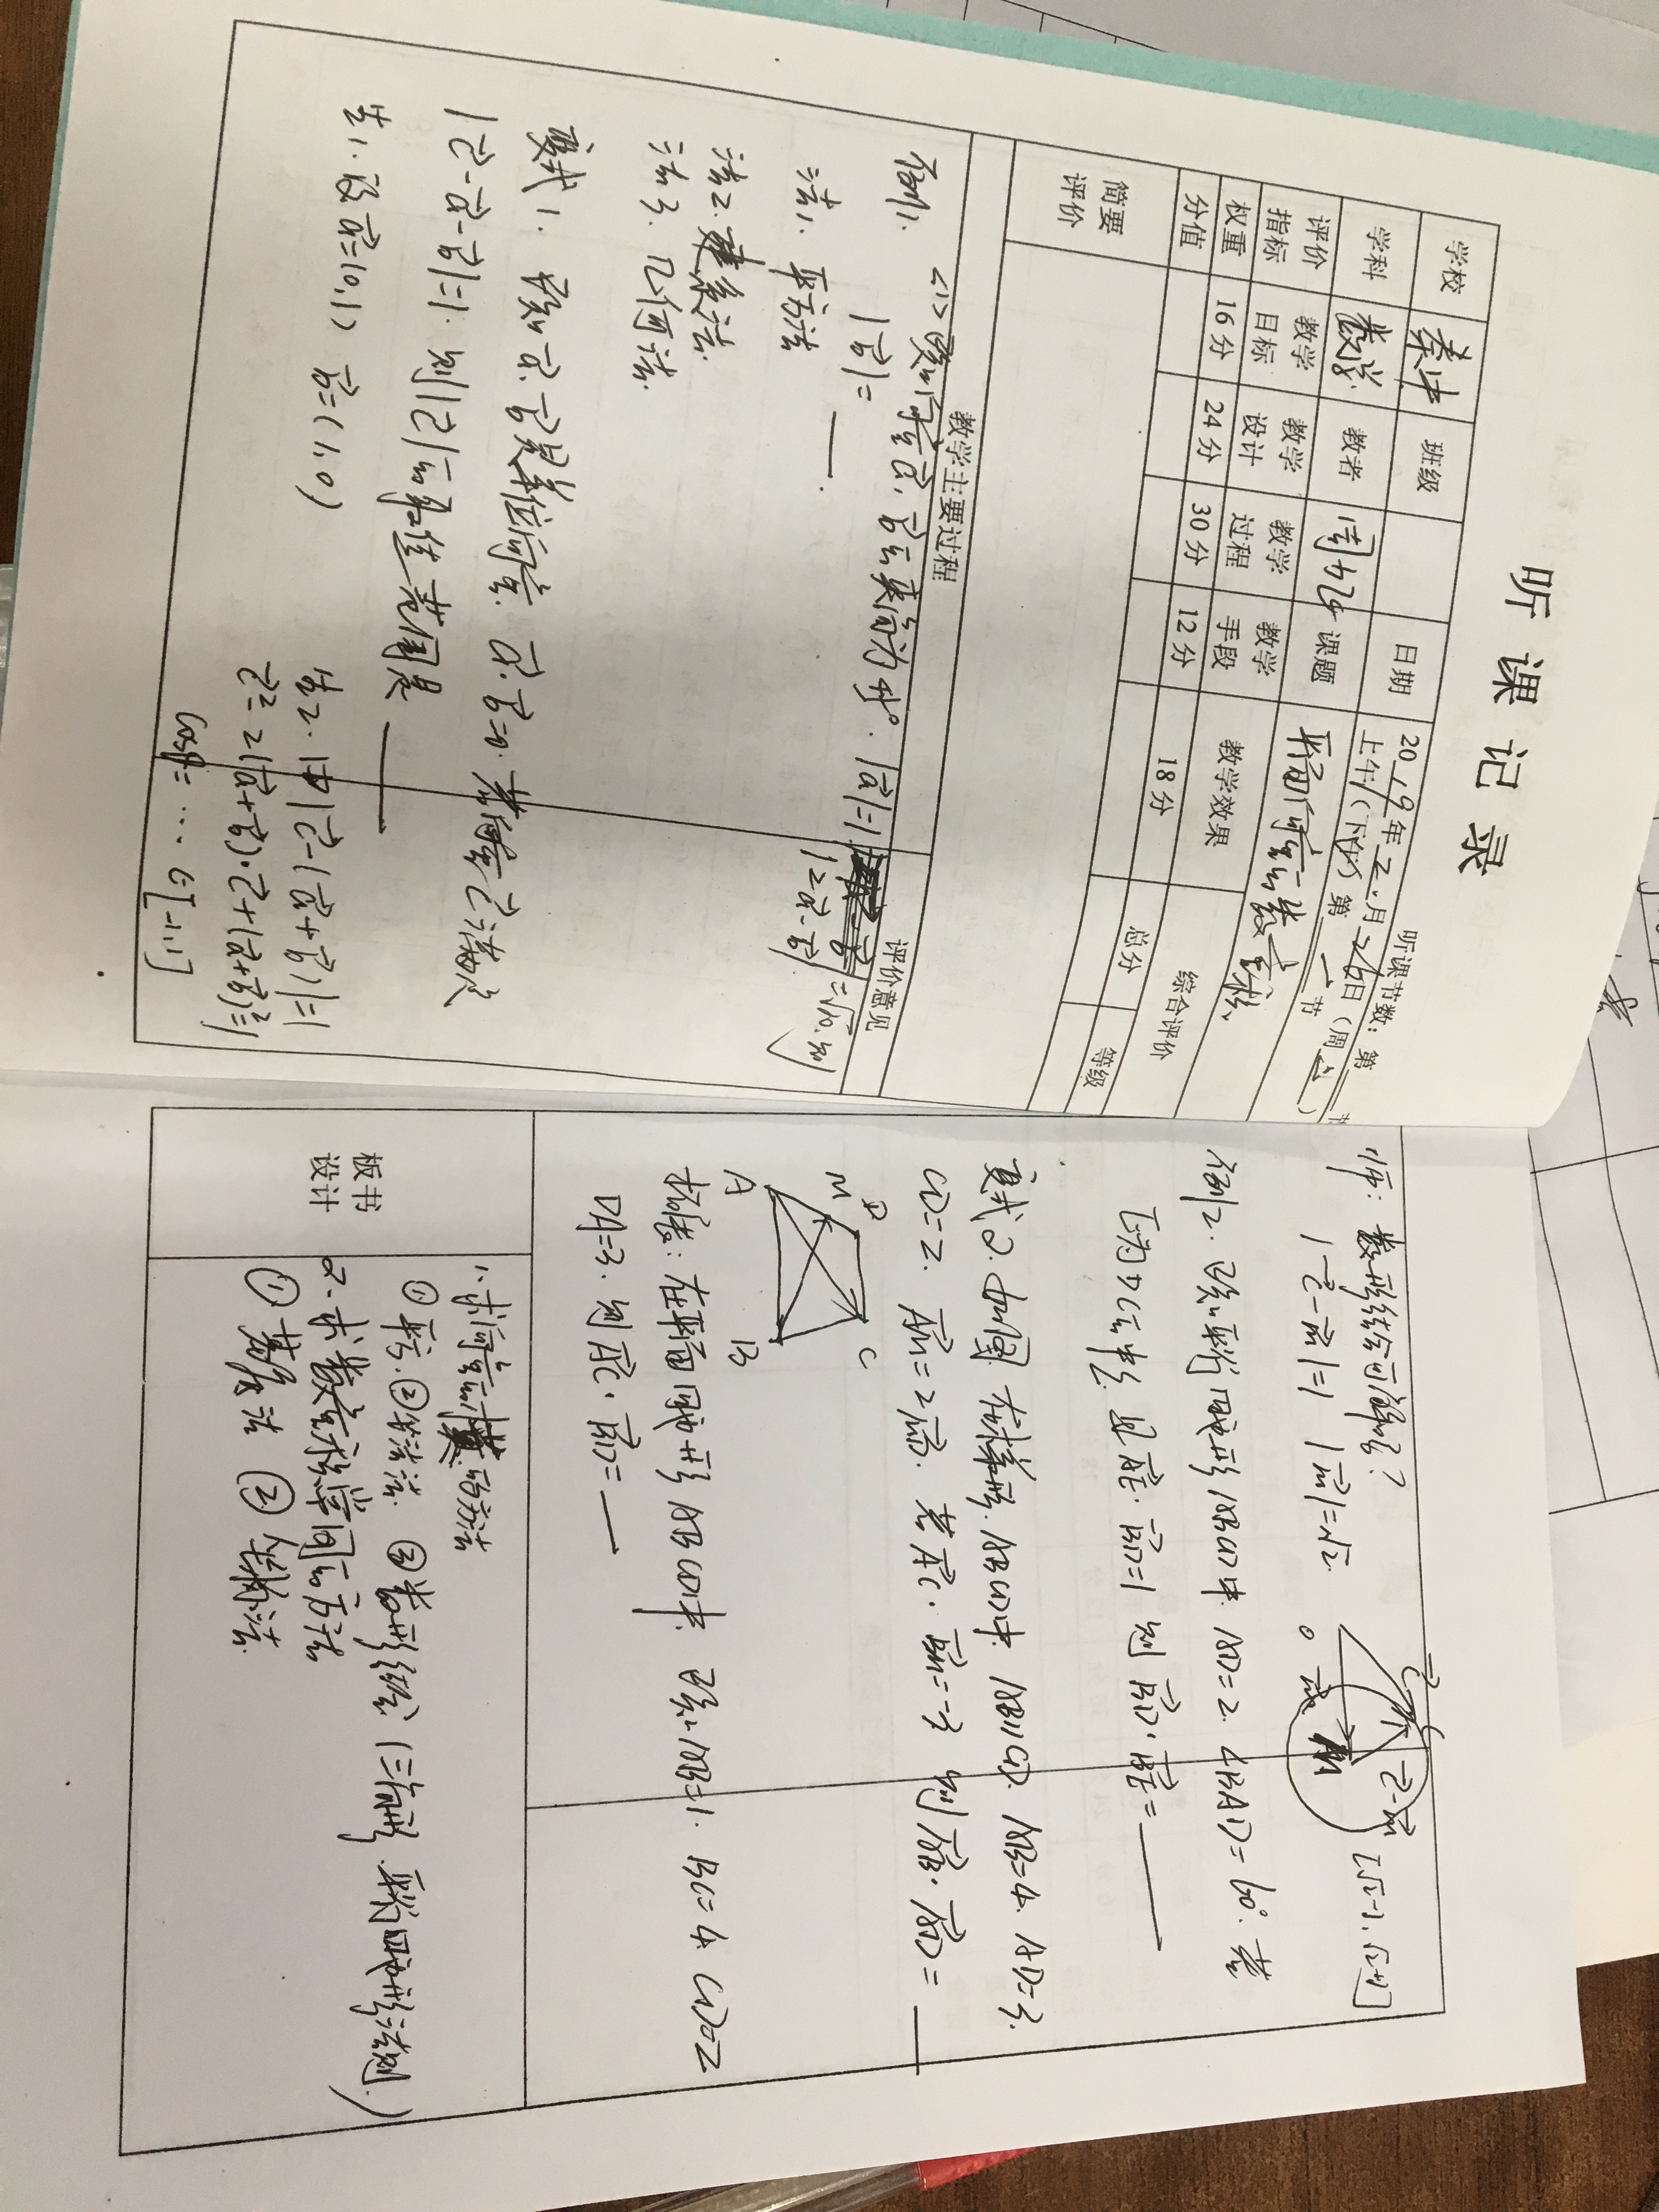 听课记录
听课节数：第 节
学校 秦中 班级 日期 2019年2月26日（周二）
上午（下午）第一节
学科 数学 教者 课题 平面向量的数量积
评价指标 教学目标 教学设计 教学过程 教学手段 教学效果 综合评价
权重分值 16分 24分 30分 12分 18分 总分 等级
简要评价
教学主要过程 评价意见
例1. <1>已知向量a⃗, b⃗的夹角为45°. |a⃗|=1,
|2a⃗-b⃗|=√10, 则
|b⃗|= ____.
法1. 平方法
法2. 建系法.
法3. 几何法.
变式1. 已知a⃗, b⃗是单位向量. a⃗·b⃗=0. 若向量c⃗满足
|c⃗-a⃗-b⃗|=1. 则|c⃗|的取值范围是 ____
生1. 设a⃗=(0,1) b⃗=(1,0)
生2. 由|c⃗-(a⃗+b⃗)|=1
c⃗²-2(a⃗+b⃗)·c⃗+(a⃗+b⃗)²=1
cosθ=… ∈[-1,1]
师: 数形结合可解吗?
|c⃗-m⃗|=1 |m⃗|=√2
[√2-1, √2+1]
O m⃗ M c⃗ C c⃗-m⃗
例2. 已知平行四边形ABCD中 AD=2. ∠BAD=60°. 若
E为DC的中点 且AE⃗·BD⃗=1 则BD⃗·BE⃗= ____
变式2. 如图 在梯形ABCD中 AB∥CD. AB=4. AD=3.
CD=2. AM⃗=2MD⃗. 若AC⃗·BM⃗=-3 则AB⃗·AD⃗= ____
A B C D M
拓展: 在平面四边形ABCD中. 已知AB=1. BC=4 CD=2
DA=3. 则AC⃗·BD⃗= ____
板书设计
1. 求向量的模的方法
① 平方. ② 坐标法. ③ 数形结合 (三角形. 平行四边形法则.)
2. 求数量积常用的方法
① 基底法 ② 坐标法.